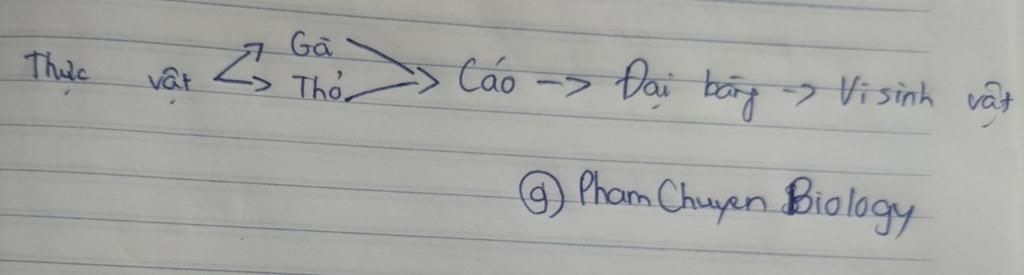 Thực vật Gà Thỏ Cáo -> Đại bàng -> Vi sinh vật
g Pham Chuyen Biology